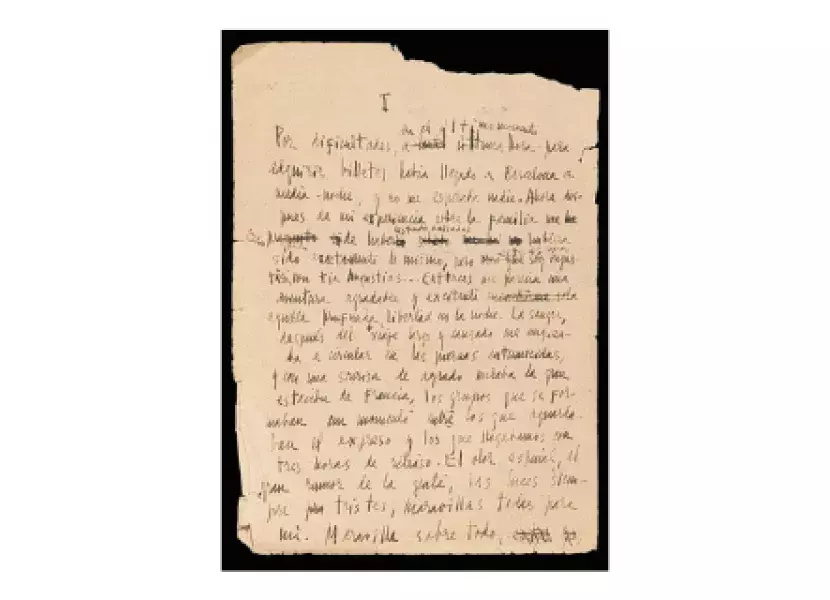 I
en el último momento
Por dificultades, a última hora para
adquirir billetes había llegado a Barcelona a
media-noche, y no me esperaba nadie. Ahora des-
pues de mi experiencia sobre la familia me he
de haber
sido exactamente lo mismo, pero
con tía Angustias... Entonces me parecía una
aventura agradable y excitante
aquella profunda libertad en la noche. La sangre,
después del viaje largo y cansado me empeza-
ba a circular en las piernas entumecidas,
y con una sonrisa de agrado miraba la gran
estación de Francia, los grupos que se for-
maban un momento sobre los que aguarda-
ban el expreso y los que llegábamos con
tres horas de retraso. El olor especial, el
gran rumor de la gente, las luces siem-
pre tristes, maravillas todas para
mí. Maravilla sobre todo,